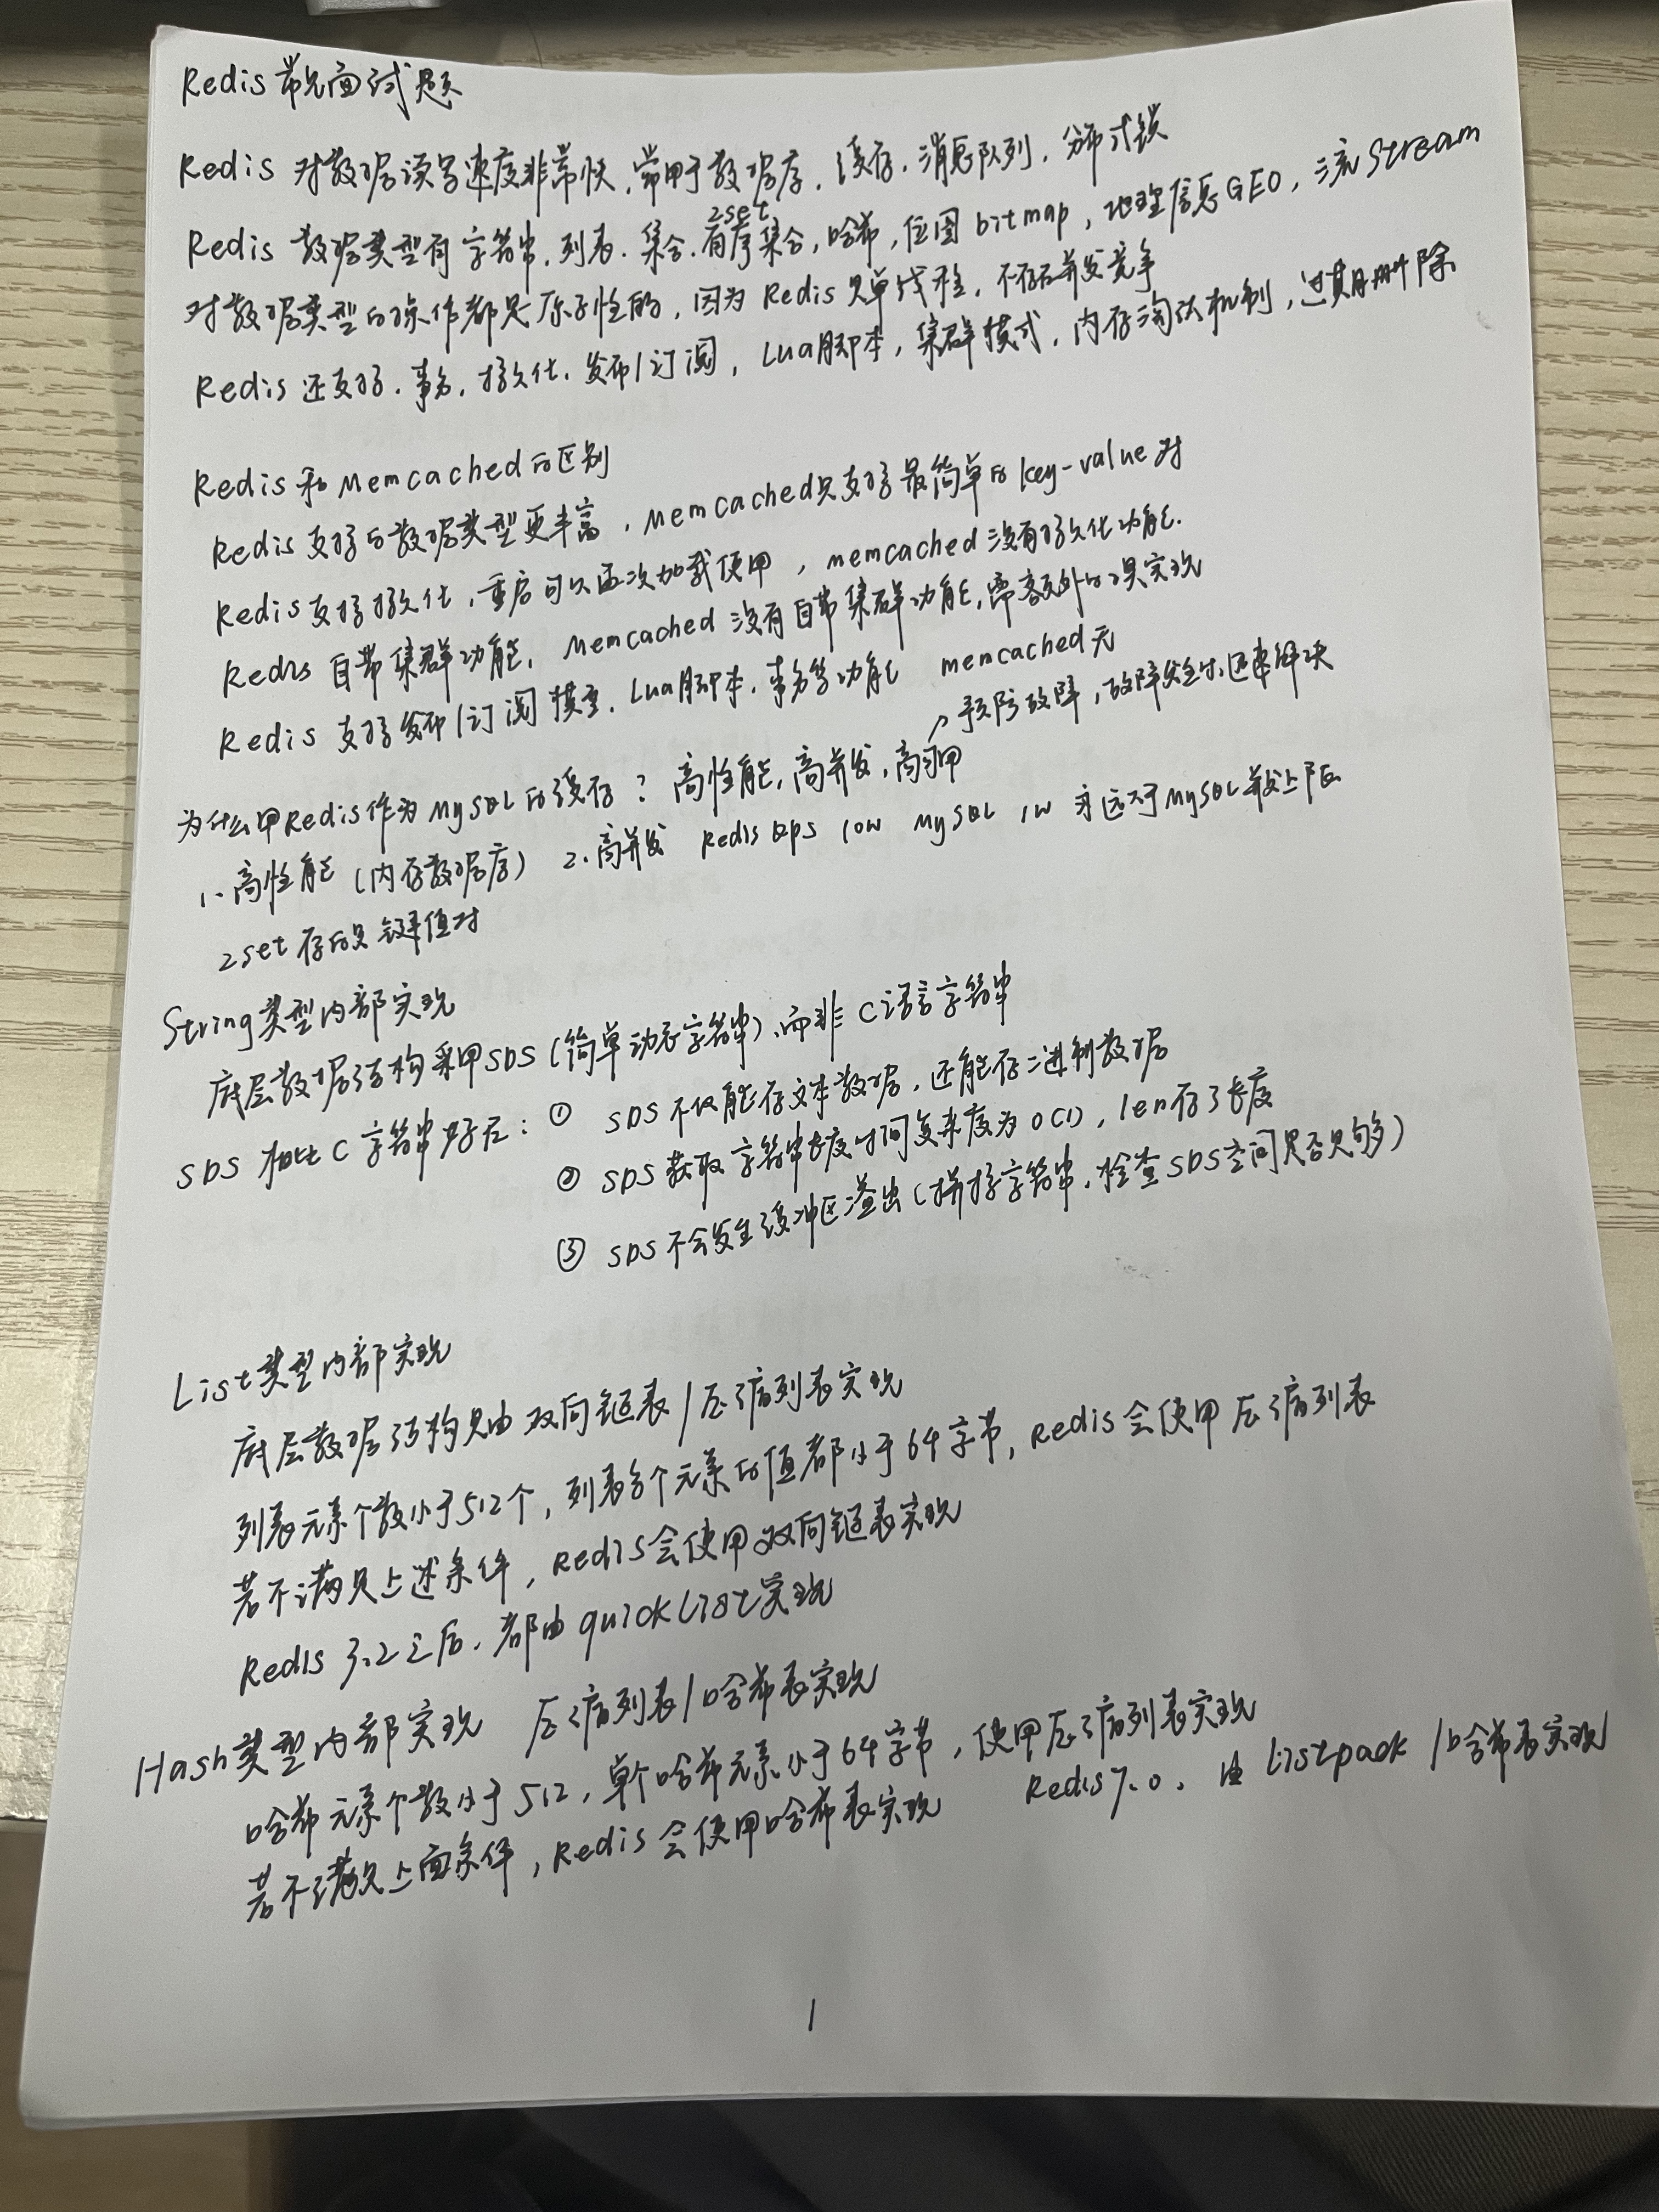 Redis常见面试题
Redis 对数据读写速度非常快，常用于数据库，缓存，消息队列，分布式锁
Redis 数据类型有字符串，列表，集合，有序集合zset，哈希，位图bitmap，地理信息GEO，流Stream
对数据类型的操作都是原子性的，因为Redis是单线程，不存在并发竞争
Redis 还支持，事务，持久化，发布/订阅，Lua脚本，集群模式，内存淘汰机制，过期删除
Redis和Memcached的区别
Redis支持的数据类型更丰富，Memcached只支持最简单的key-value对
Redis支持持久化，重启可以再次加载使用，memcached没有持久化功能.
Redis 自带集群功能，Memcached 没有自带集群功能，需额外的工具实现
Redis 支持发布/订阅模型，Lua脚本，事务等功能 memcached无
↗预防故障，故障发生时迅速解决
为什么用Redis作为MySQL的缓存？高性能，高并发，高可用
1. 高性能（内存数据库） 2. 高并发 Redis QPS 10W MySQL 1W 远大于MySQL并发上限
zset存的是键值对
String类型内部实现
底层数据结构采用SDS（简单动态字符串），而非C语言字符串
SDS 相比C字符串好在：① SDS 不仅能存文本数据，还能存二进制数据
② SDS 获取字符串长度时间复杂度为O(1)，len存了长度
③ SDS 不会发生缓冲区溢出（拼接字符串，检查SDS空间是否足够）
List类型内部实现
底层数据结构是由双向链表/压缩列表实现
列表元素个数小于512个，列表每个元素的值都小于64字节，Redis会使用压缩列表
若不满足上述条件，Redis会使用双向链表实现
Redis 3.2之后，都由quicklist实现
Hash类型内部实现 压缩列表/哈希表实现
哈希元素个数小于512，单个哈希元素小于64字节，使用压缩列表实现
若不满足上面条件，Redis会使用哈希表实现 Redis7.0，由Listpack/哈希表实现
1